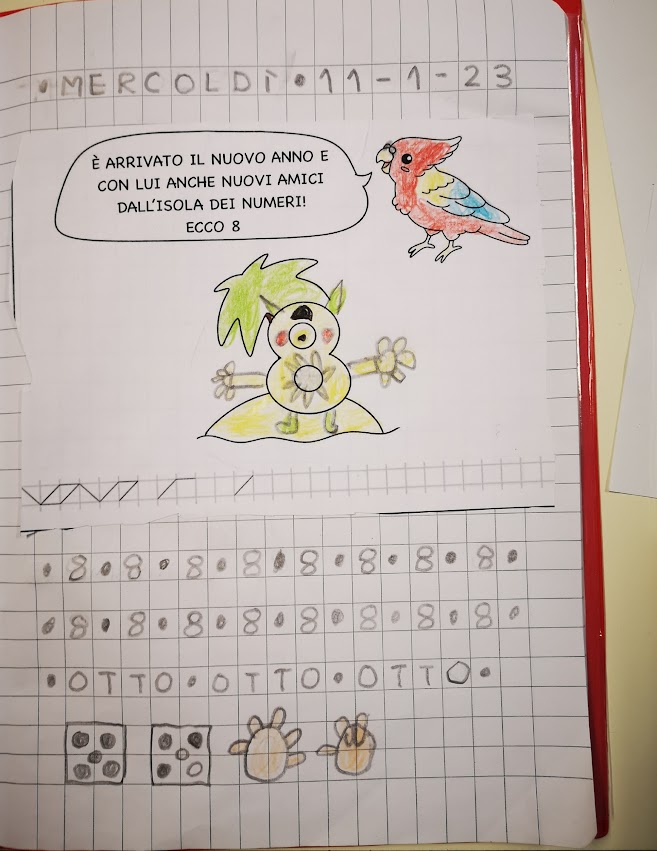 •MERCOLDÌ•11-1-23
È ARRIVATO IL NUOVO ANNO E
CON LUI ANCHE NUOVI AMICI
DALL'ISOLA DEI NUMERI!
ECCO 8
•8•8•8•8•8•8•8•8•
•8•8•8•8•8•8•8•8•
•OTTO•OTTO•OTTO•